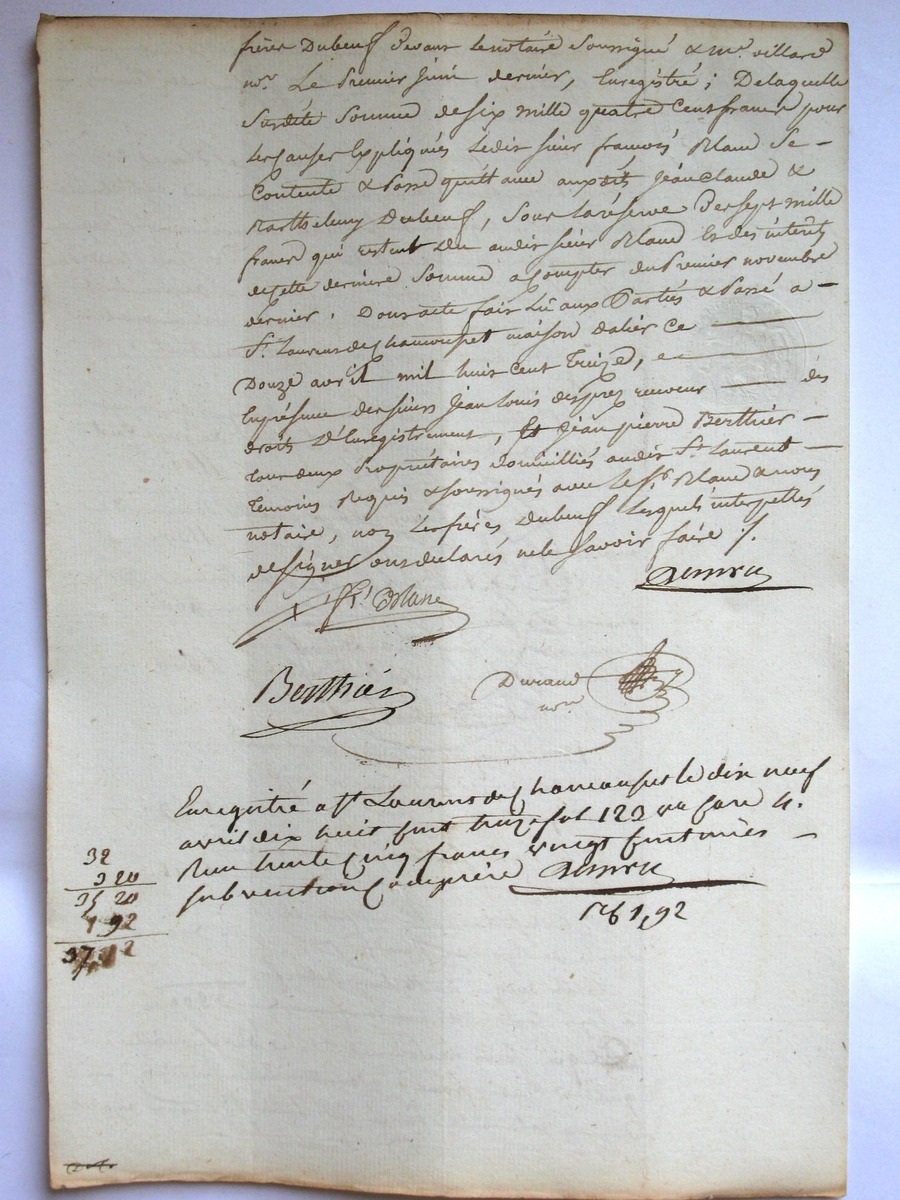 frères Dubeuf devant le notaire Soussigné & Me. villard
nre. Le Premier Juin dernier, Enregistré; De laquelle
Susdite Somme de Six mille quatre Cent francs pour
les causes Expliqués Ledit Sieur francois Blanc Se -
Contente & Passe quittance auxdits Jean Claude &
Barthelemy Dubeuf, Sous la réserve des sept mille
francs qui restent Du audit Sieur Blanc & des intérêts
de Cette dernière Somme a Compter du Premier novembre
dernier. Dont acte fait Lû aux Parties & Passé a -
St. Laurent de Chamousset maison ce
Douze avril mil huit Cent Treize,
En présence des sieurs Jean Louis desprez receveur des
droits D'Enregistrement, Et Jean pierre Berthier -
tous deux Propriétaires domiciliés audit St. Laurent -
Temoins Requis & Soussignés avec le Sr. Blanc & nous
notaire, non Les frères Dubeuf Lesquels interpellés
de signer ont déclarés ne le Savoir faire /.
fs. Blanc
Berthier
Durand
nre
Enregistré a St Laurent de Chamousset le dix neuf
avril dix huit cent treize fol 123 vo case 4.
Reçu trente cinq francs vingt centimes -
subvention comprise
1,92
32
3 20
35 20
1 92
37 12